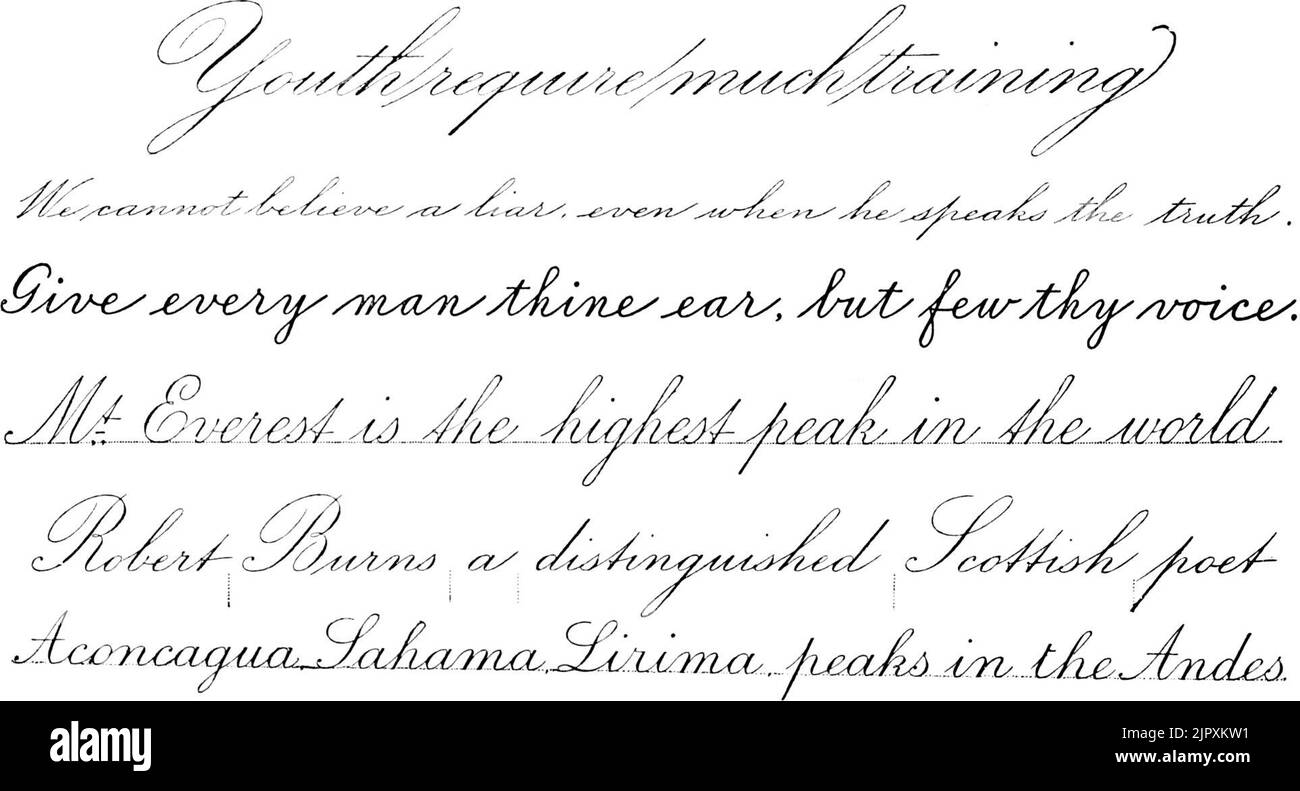 Youth require much training
We cannot believe a liar, even when he speaks the truth.
Give every man thine ear, but few thy voice.
Mt. Everest is the highest peak in the world
Robert Burns a distinguished Scottish poet
Aconcagua, Sahama, Lirima, peaks in the Andes.
alamy
Image ID: 2JPXKW1
www.alamy.com